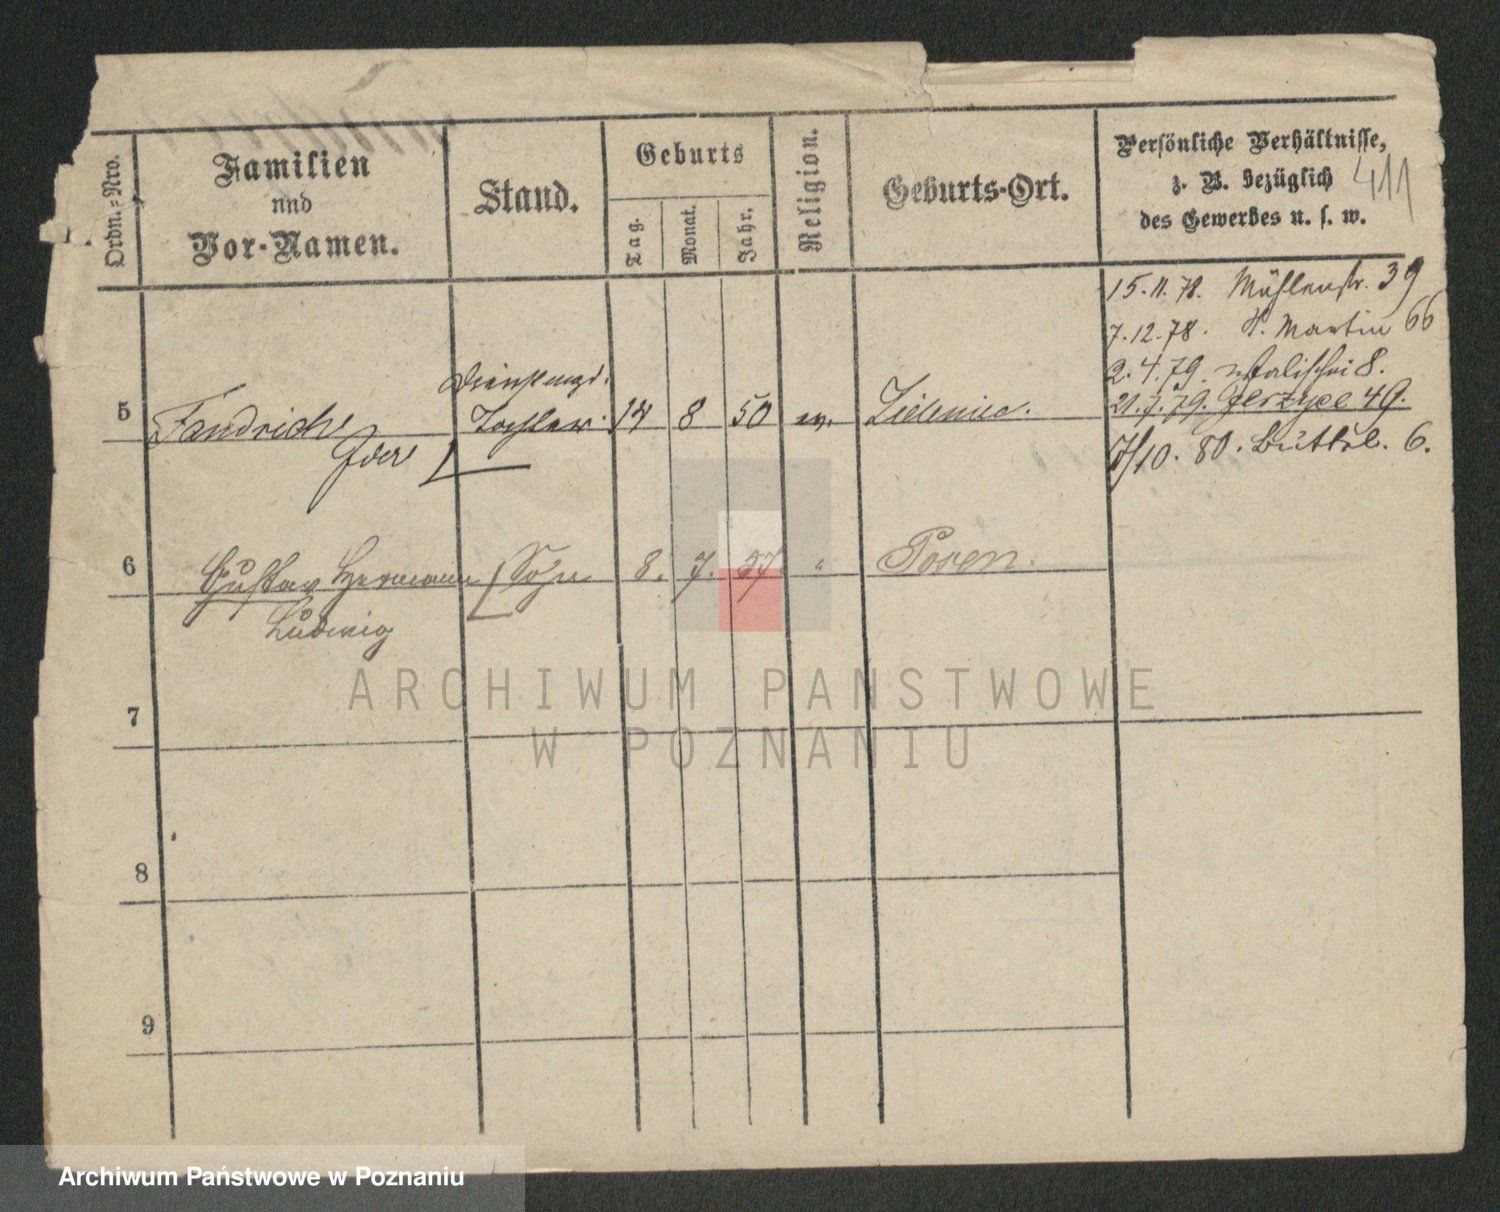 Ordn.-Nro.
Familien
und
Vor-Namen.
Stand.
Geburts
Tag.
Monat.
Jahr.
Religion.
Geburts-Ort.
Persönliche Verhältnisse,
z. B. bezüglich
des Gewerbes u. s. w.
411
15.11.78. Mühlenstr. 39
7.12.78. St. Martin 66
2.4.79. 8.
21.7.79. Jerzyce 49.
7/10. 80. Büttel. 6.
5
Fandrich
Tochter. 14 8 50 ev.
6
Gustav Hermann Sohn 8. 7. " Posen.
Ludwig
7
8
9
ARCHIWUM PANSTWOWE
W POZNANIU
Archiwum Państwowe w Poznaniu